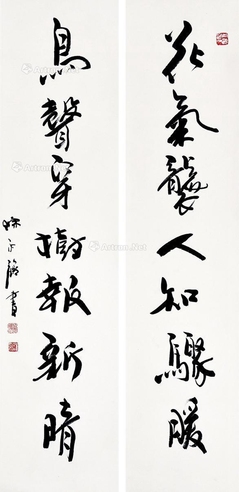 花氣襲人知驟暖
鳥聲穿樹報新晴
書